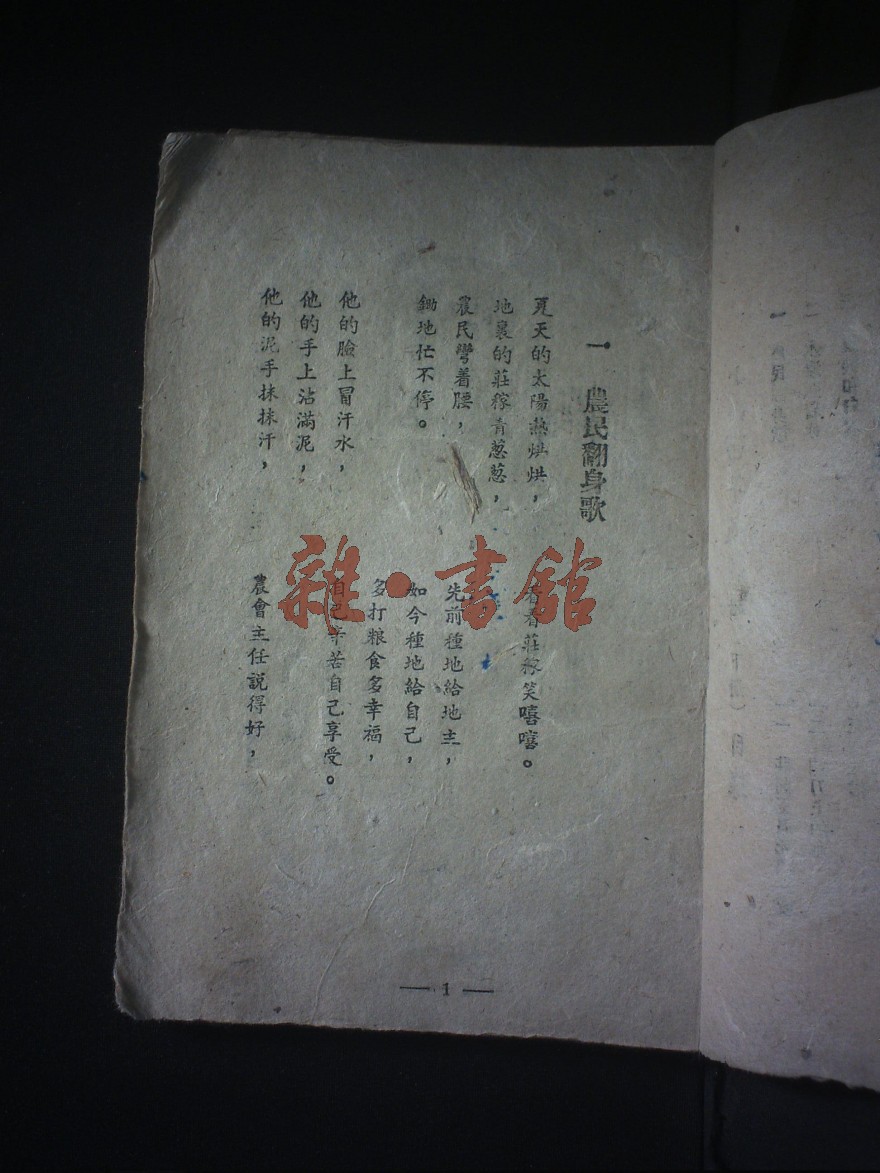 一 農民翻身歌
夏天的太陽熱烘烘，
地裏的莊稼青蔥蔥，
農民彎着腰，
鋤地忙不停。
他的臉上冒汗水，
他的手上沾滿泥，
他的泥手抹抹汗，
看看莊稼笑嘻嘻。
先前種地給地主，
如今種地給自己，
多打粮食多幸福，
自己辛苦自己享受。
農會主任説得好，
— 1 —
雜·書館